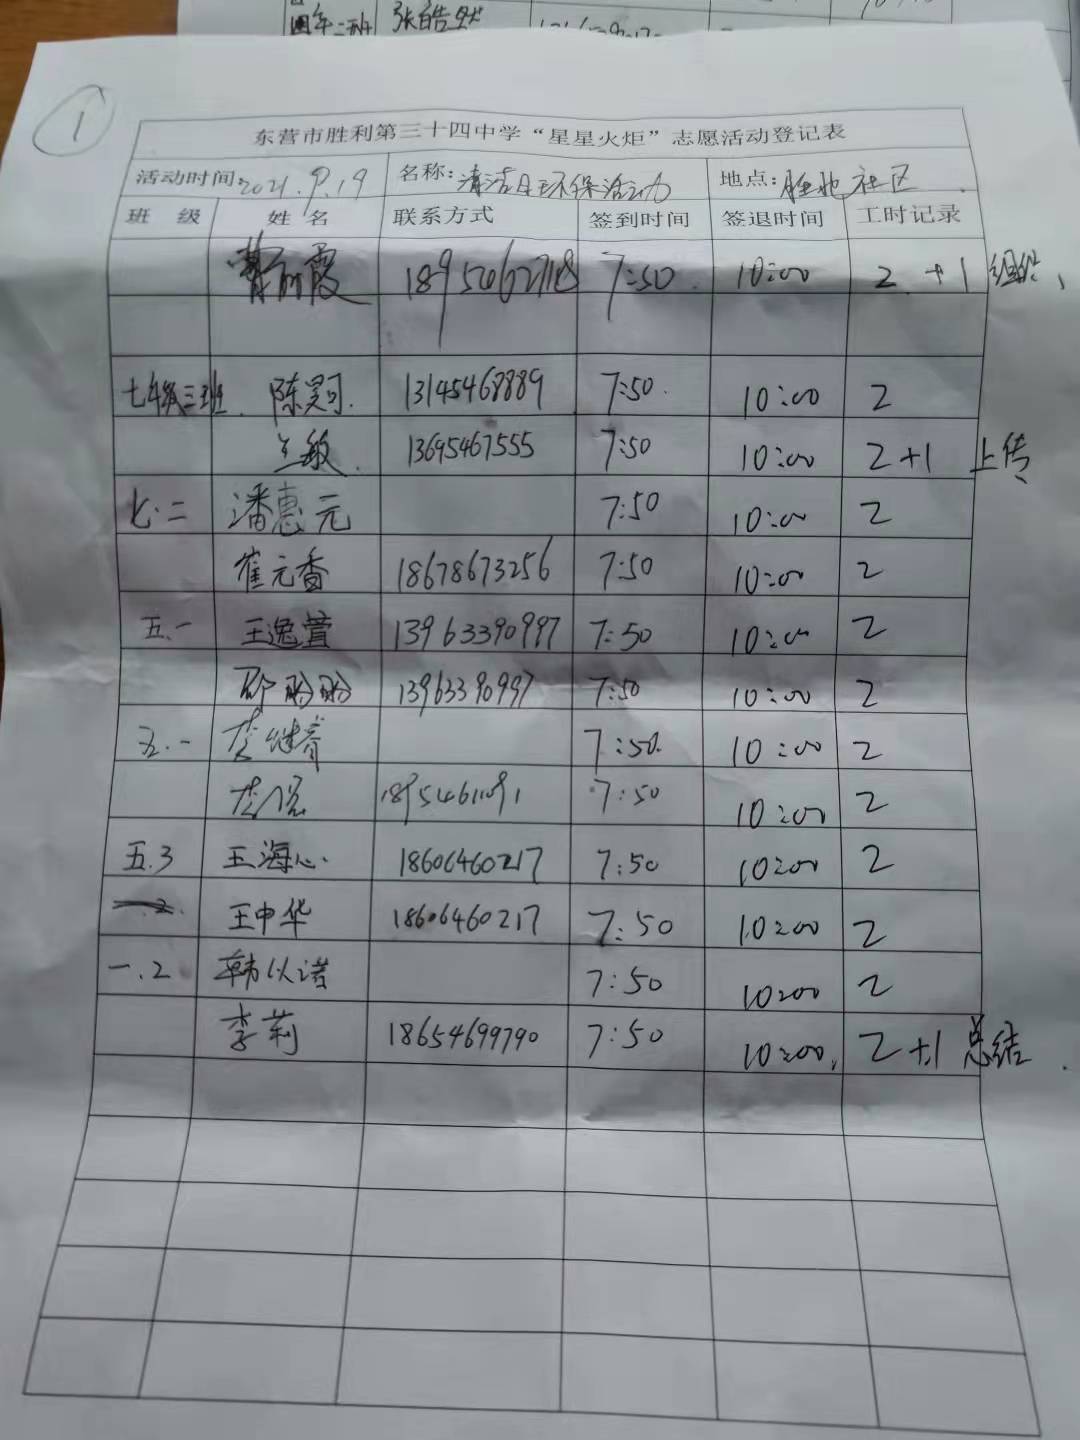 张皓然
①
东营市胜利第三十四中学“星星火炬”志愿活动登记表
活动时间: 2021.9.19 名称: 清洁日环保活动 地点: 胜利社区
班 级 姓 名 联系方式 签到时间 签退时间 工时记录
霞 7:50 10:00 2 +1 组织
七年级三班 陈昊司 13145468889 7:50 10:00 2
兰敏 13695467555 7:50 10:00 2+1 上传
七.二 潘惠元 7:50 10:00 2
崔元香 18678673256 7:50 10:00 2
五.一 王逸萱 13963390997 7:50 10:00 2
邵盼盼 13963390997 7:50 10:00 2
五.一 李继睿 7:50 10:00 2
7:50 10:00 2
五.3 王海心 18606460217 7:50 10:00 2
王中华 18606460217 7:50 10:00 2
一.2 韩以诺 7:50 10:00 2
李莉 18654699790 7:50 10:00 2+1 总结